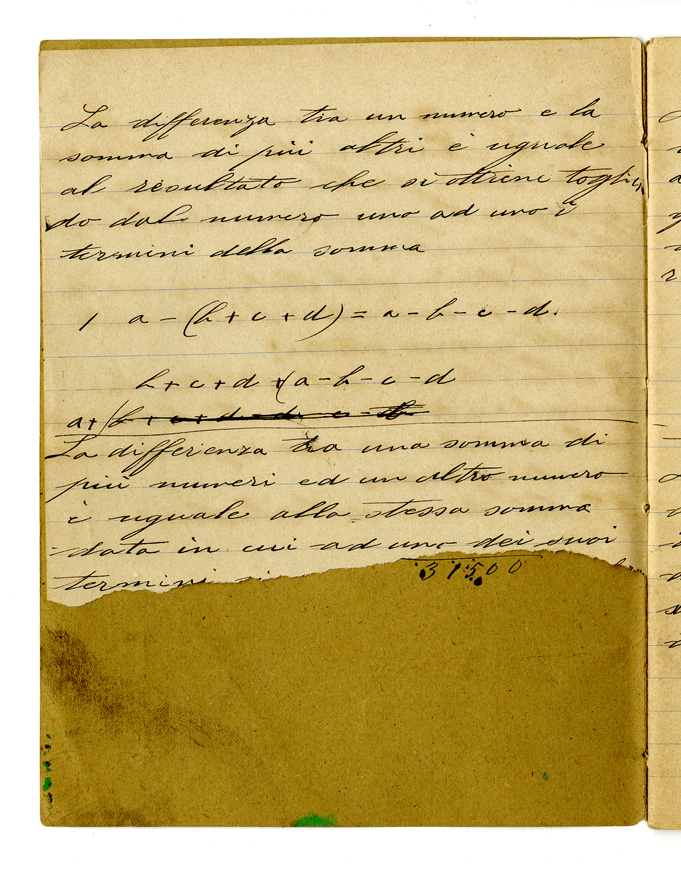 La differenza tra un numero e la
somma di più altri è uguale
al resultato che si ottiene toglien
do dal numero uno ad uno i
termini della somma
1 a - (b + c + d) = a - b - c - d.
b + c + d + (a - b - c - d
a + (b + c + d - d - c - b
La differenza tra una somma di
più numeri ed un altro numero
è uguale alla stessa somma
data in cui ad uno dei suoi
termini si
31500